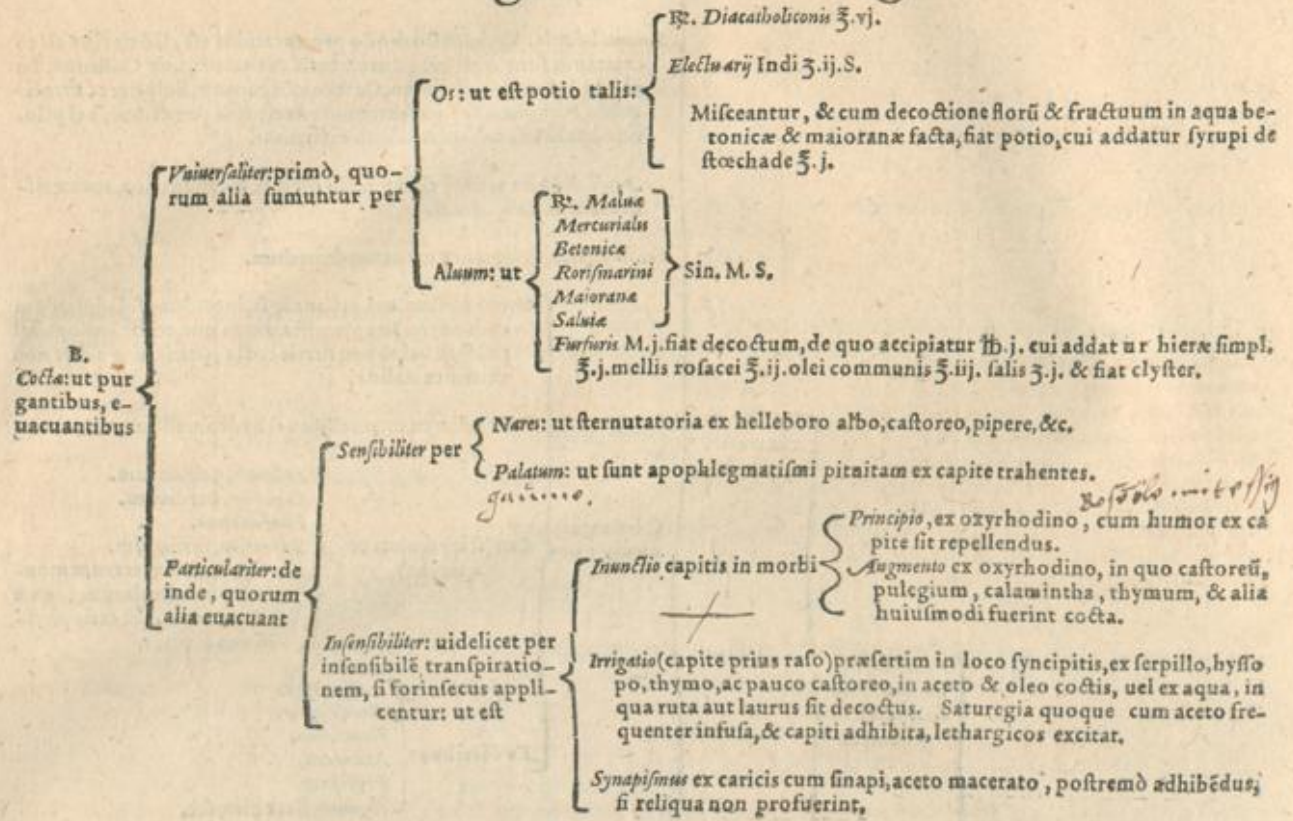 B.
Coctæ: ut pur
gantibus, e-
uacuantibus
Vniuersaliter: primò, quo-
rum alia sumuntur per
Os: ut est potio talis:
℞. Diacatholiconis ℥.vj.
Electuarij Indi ʒ.ij.S.
Misceantur, & cum decoctione florū & fructuum in aqua be-
tonicæ & maioranæ facta, fiat potio, cui addatur syrupi de
stœchade ℥.j.
Aluum: ut
℞. Maluæ
Mercurialis
Betonicæ
Rorismarini
Maioranæ
Saluiæ
Sin. M. S.
Furfuris M.j. fiat decoctum, de quo accipiatur ℔.j. cui addatur hieræ simpl.
℥.j. mellis rosacei ℥.ij. olei communis ℥.iij. salis ʒ.j. & fiat clyster.
Particulariter: de
inde, quorum
alia euacuant
Sensibiliter per
Nares: ut sternutatoria ex helleboro albo, castoreo, pipere, &c.
Palatum: ut sunt apophlegmatismi pituitam ex capite trahentes.
Insensibiliter: uidelicet per
insensibilē transpiratio-
nem, si forinsecus appli-
centur: ut est
Inunctio capitis in morbi
Principio, ex oxyrhodino, cum humor ex ca
pite sit repellendus.
Augmento ex oxyrhodino, in quo castoreū,
pulegium, calamintha, thymum, & alia
huiusmodi fuerint cocta.
Irrigatio (capite prius raso) præsertim in loco syncipitis, ex serpillo, hysso
po, thymo, ac pauco castoreo, in aceto & oleo coctis, uel ex aqua, in
qua ruta aut laurus sit decoctus. Saturegia quoque cum aceto fre-
quenter infusa, & capiti adhibita, lethargicos excitat.
Synapismus ex caricis cum sinapi, aceto macerato, postremò adhibēdus,
si reliqua non profuerint.